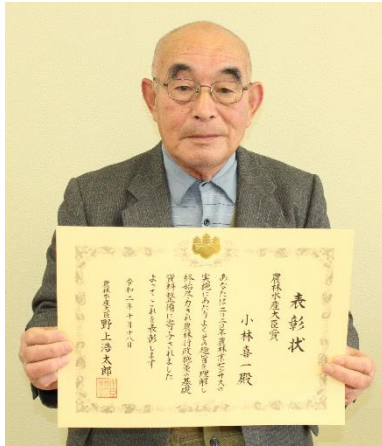 表彰状
農林水産大臣賞
小林喜一殿
あなたは二〇二〇年農林業センサスの
実施にあたりよくその趣旨を理解し
終始尽力され農林行政施策の基礎
資料整備に寄与されました
よってこれを表彰します
令和二年十一月十八日
農林水産大臣 野上浩太郎